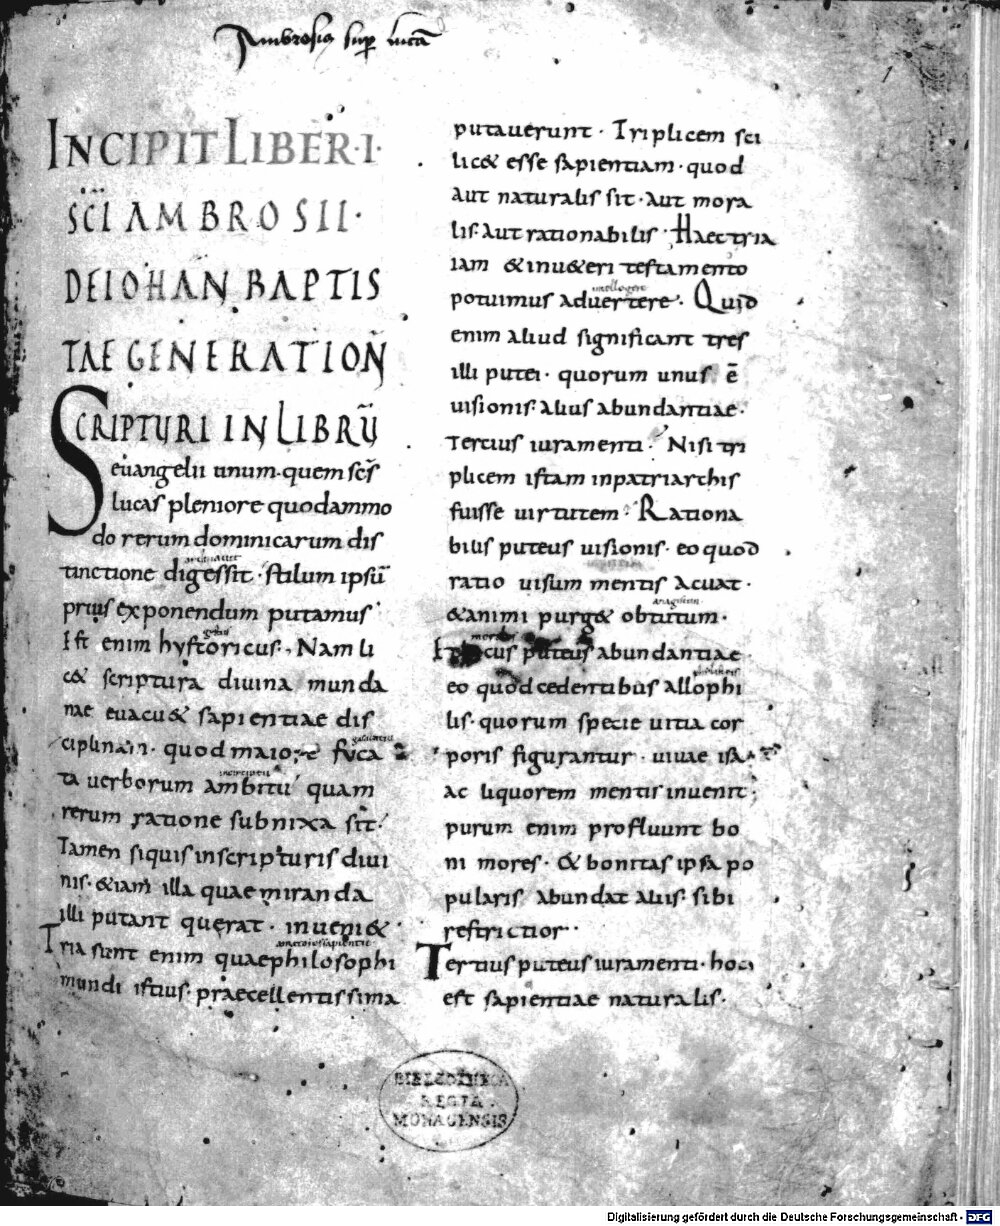 Ambrosius sup lucā
1
INCIPIT LIBER·I·
SC̄I AMBROSII·
DE IOHAN BAPTIS
TAE GENERATIOÑ
SCRIPTURI IN LIBRŪ
euangelii unum·quem sc̄s
lucas pleniore quodammo
do rerum dominicarum dis
tinctione digessit·stilum ipsū
prius exponendum putamus·
Est enim hystoricus·Nam li
c& scriptura diuina munda
nae euacu& sapientiae dis
ciplinam·quod maiore fuca
ta uerborum ambitu quam
rerum ratione subnixa sit·
Tamen siquis inscripturis diui
nis·&iam illa quae miranda
illi putant querat·inueni&·
Tria sunt enim quae philosophi
mundi istius·praecellentissima
putauerunt·Triplicem sci
lic& esse sapientiam·quod
aut naturalis sit·aut mora
lis·aut rationabilis·Haec tria
iam &inu&eri testamento
intellegere
potuimus aduertere·Quid
enim aliud significant tres
illi putei·quorum unus ē
uisionis·alius abundantiae·
Tertius iuramenti·Nisi tri
plicem istam inpatriarchis
fuisse uirtutem·Rationa
bilis puteus uisionis·eo quod
ratio uisum mentis acuat·
&animi purg& obtutum·
puteus abundantiae
eo quod cedentibus allophi
lis·quorum specie uitia cor
poris figurantur·uiuae isa
ac liquorem mentis inuenit·
purum enim profluunt bo
ni mores·& bonitas ipsa po
pularis abundat aliis·sibi
restrictior·
Tertius puteus iuramenti·hoc
est sapientiae naturalis·
BIBLIOTHECA
REGIA
MONACENSIS
Digitalisierung gefördert durch die Deutsche Forschungsgemeinschaft - DFG